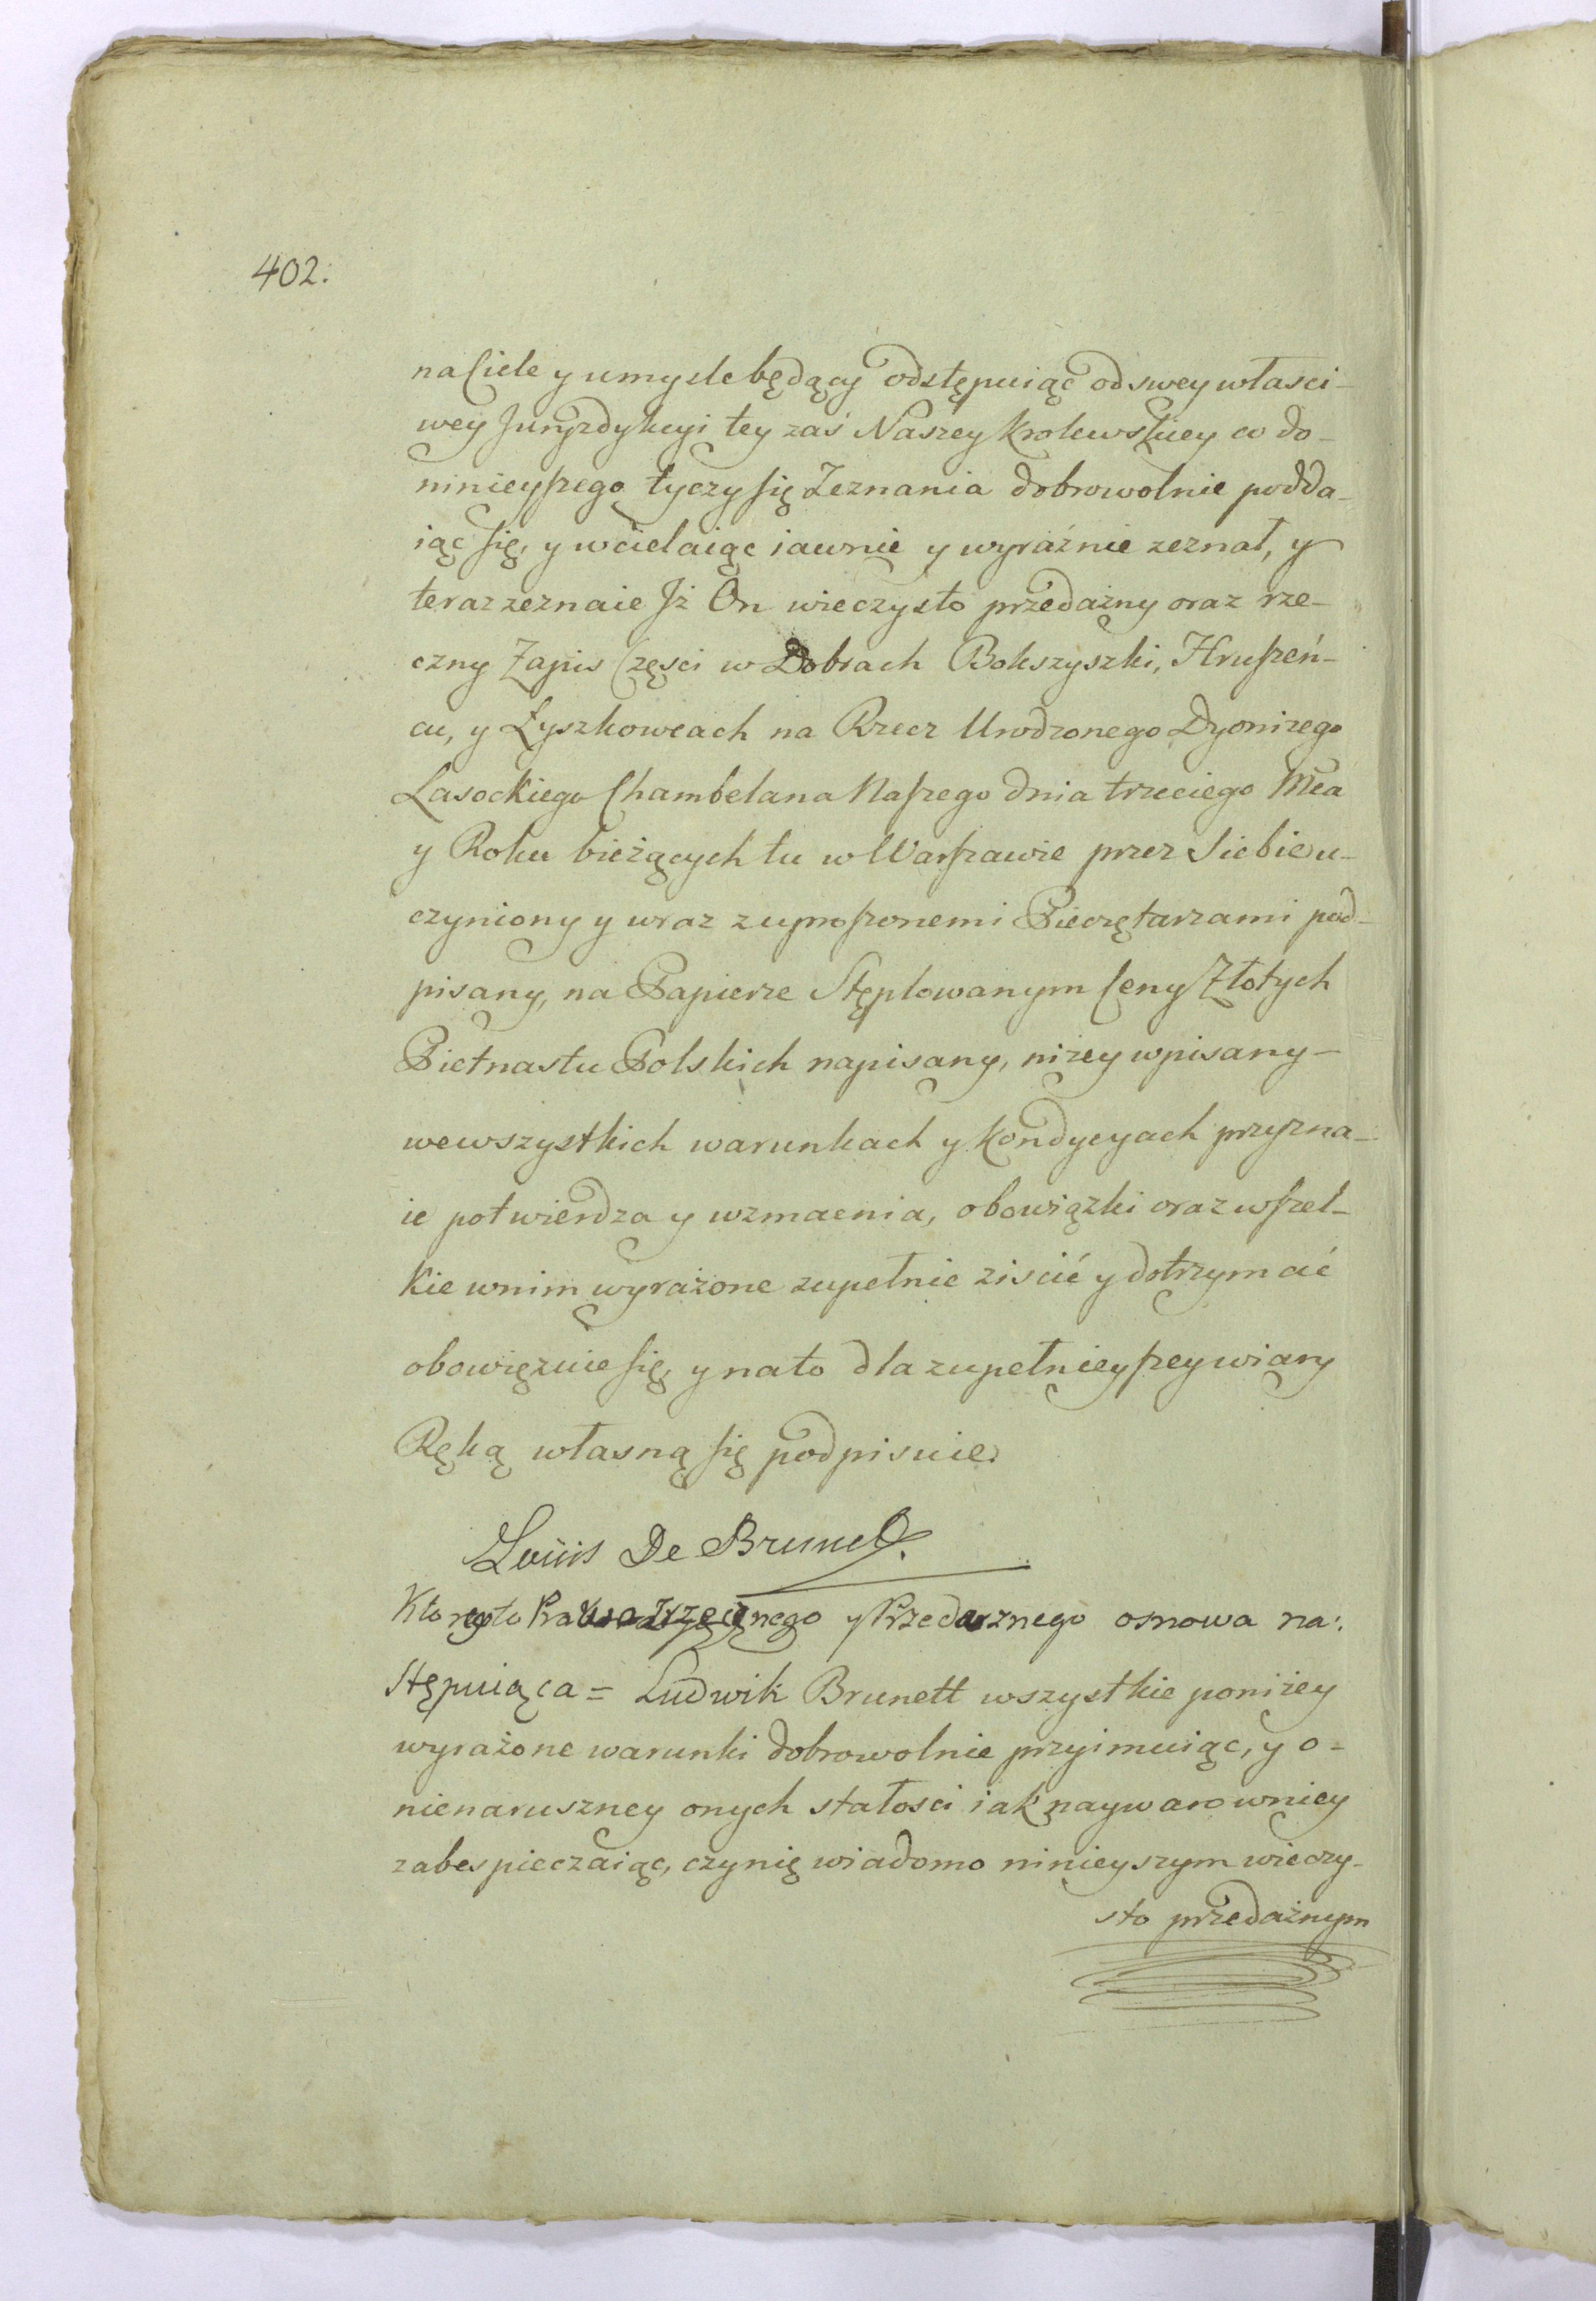 402.
na Ciele y umysle będący odstępuiąc od swey własci-
wey Juryzdykcyi tey zaś Naszey Krolewskiey co do-
ninieyszego tyczy się Zeznania dobrowolnie podda-
iąc się, y wcielaiąc iawnie y wyraźnie zeznał, y
teraz zeznaie Jż On wieczysto przedażny oraz rze-
czny Zapis Częsci w Dobrach Bokszyszki, Hruszeń-
cu, y Łyszkowcach na Rzecz Urodzonego Dyonizego
Lasockiego Chambelana Naszego dnia trzeciego Mca
y Roku bieżących tu w Warszawie przez Siebie u-
czyniony y wraz z uproszonemi Pieczętarzami pod-
pisany, na Papierze Stęplowanym Ceny Złotych
Pietnastu Polskich napisany, niżey wpisany-
we wszystkich warunkach y Kondycyach przyzna-
ie potwierdza y wzmacnia, obowiązki oraz wszel-
kie w nim wyrażone zupełnie ziscić y dotrzymać
obowięzuie się, y na to dla zupełnieyszey wiary
Ręką własną się podpisuie.
Louis De Brunet.
Ktorego to Prawa Wieczystego y Przedarznego osnowa na:
stępuiąca = Ludwik Brunett wszystkie poniżey
wyrażone warunki dobrowolnie przyimuiąc, y o-
nienaruszney onych stałosci iak naywarowniey
zabespieczaiąc, czynię wiadomo ninieyszym wieczy-
sto przedażnym